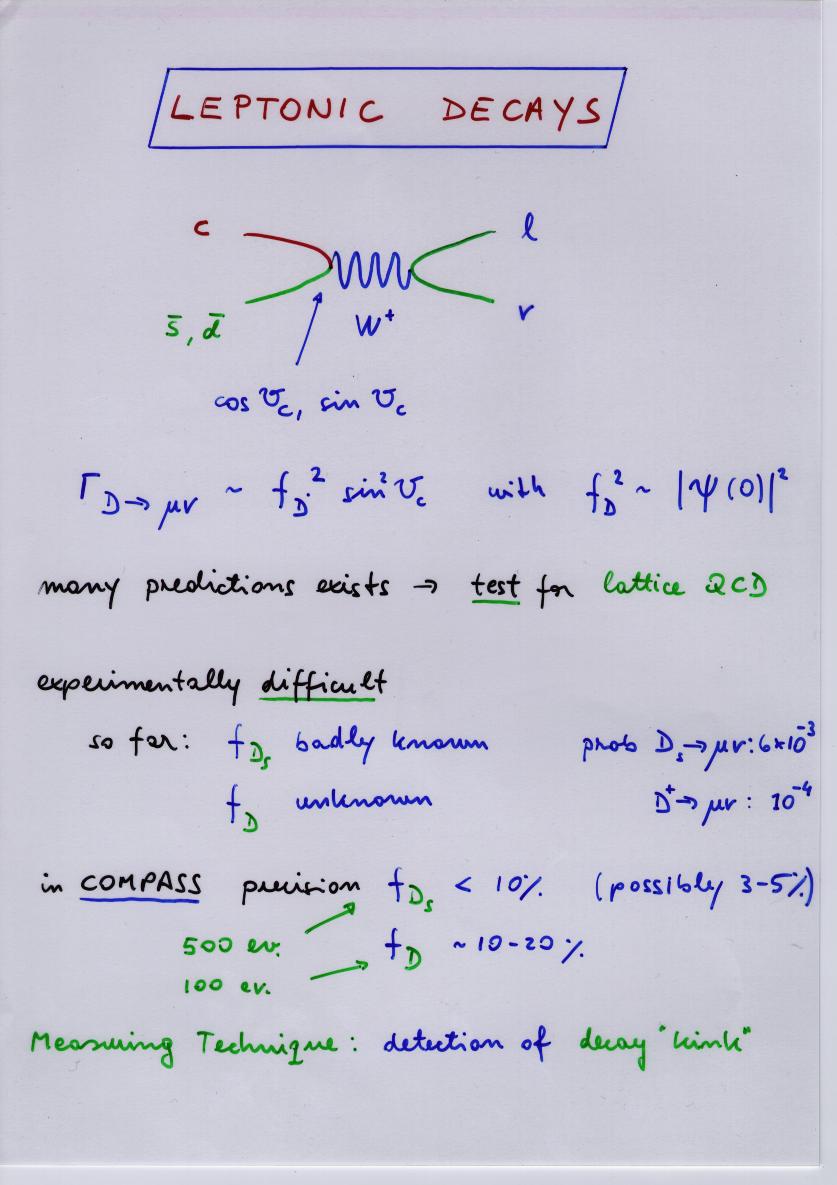 LEPTONIC DECAYS
c l
s̄, d̄ W⁺ ν
cos ϑ_c, sin ϑ_c
Γ_D→μν ~ f_D² sin²ϑ_c with f_D² ~ |ψ(0)|²
many predictions exists → test for lattice QCD
experimentally difficult
so far: f_Ds badly known prob D_s→μν: 6×10⁻³
f_D unknown D⁺→μν: 10⁻⁴
in COMPASS precision f_Ds < 10% (possibly 3-5%)
500 ev. f_D ~10-20%
100 ev.
Measuring Technique: detection of decay "kink"